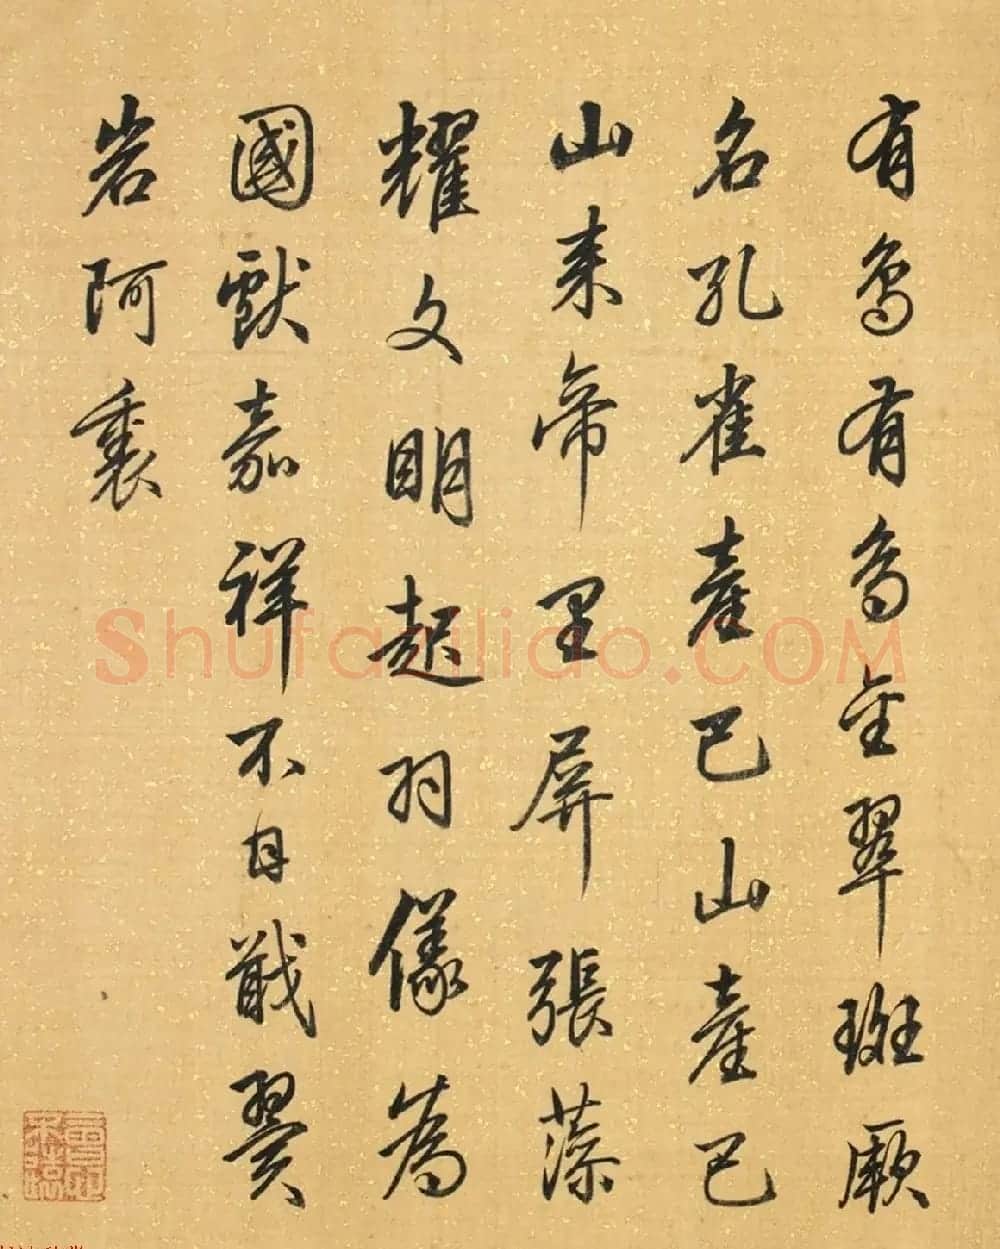 有鳥有鳥金翠斑厥
名孔雀産巴山産巴
山来帝里屏張藻
耀文明起羽儀為
國獻嘉祥不自戢翼
岩阿裏
Shufaziliao.COM